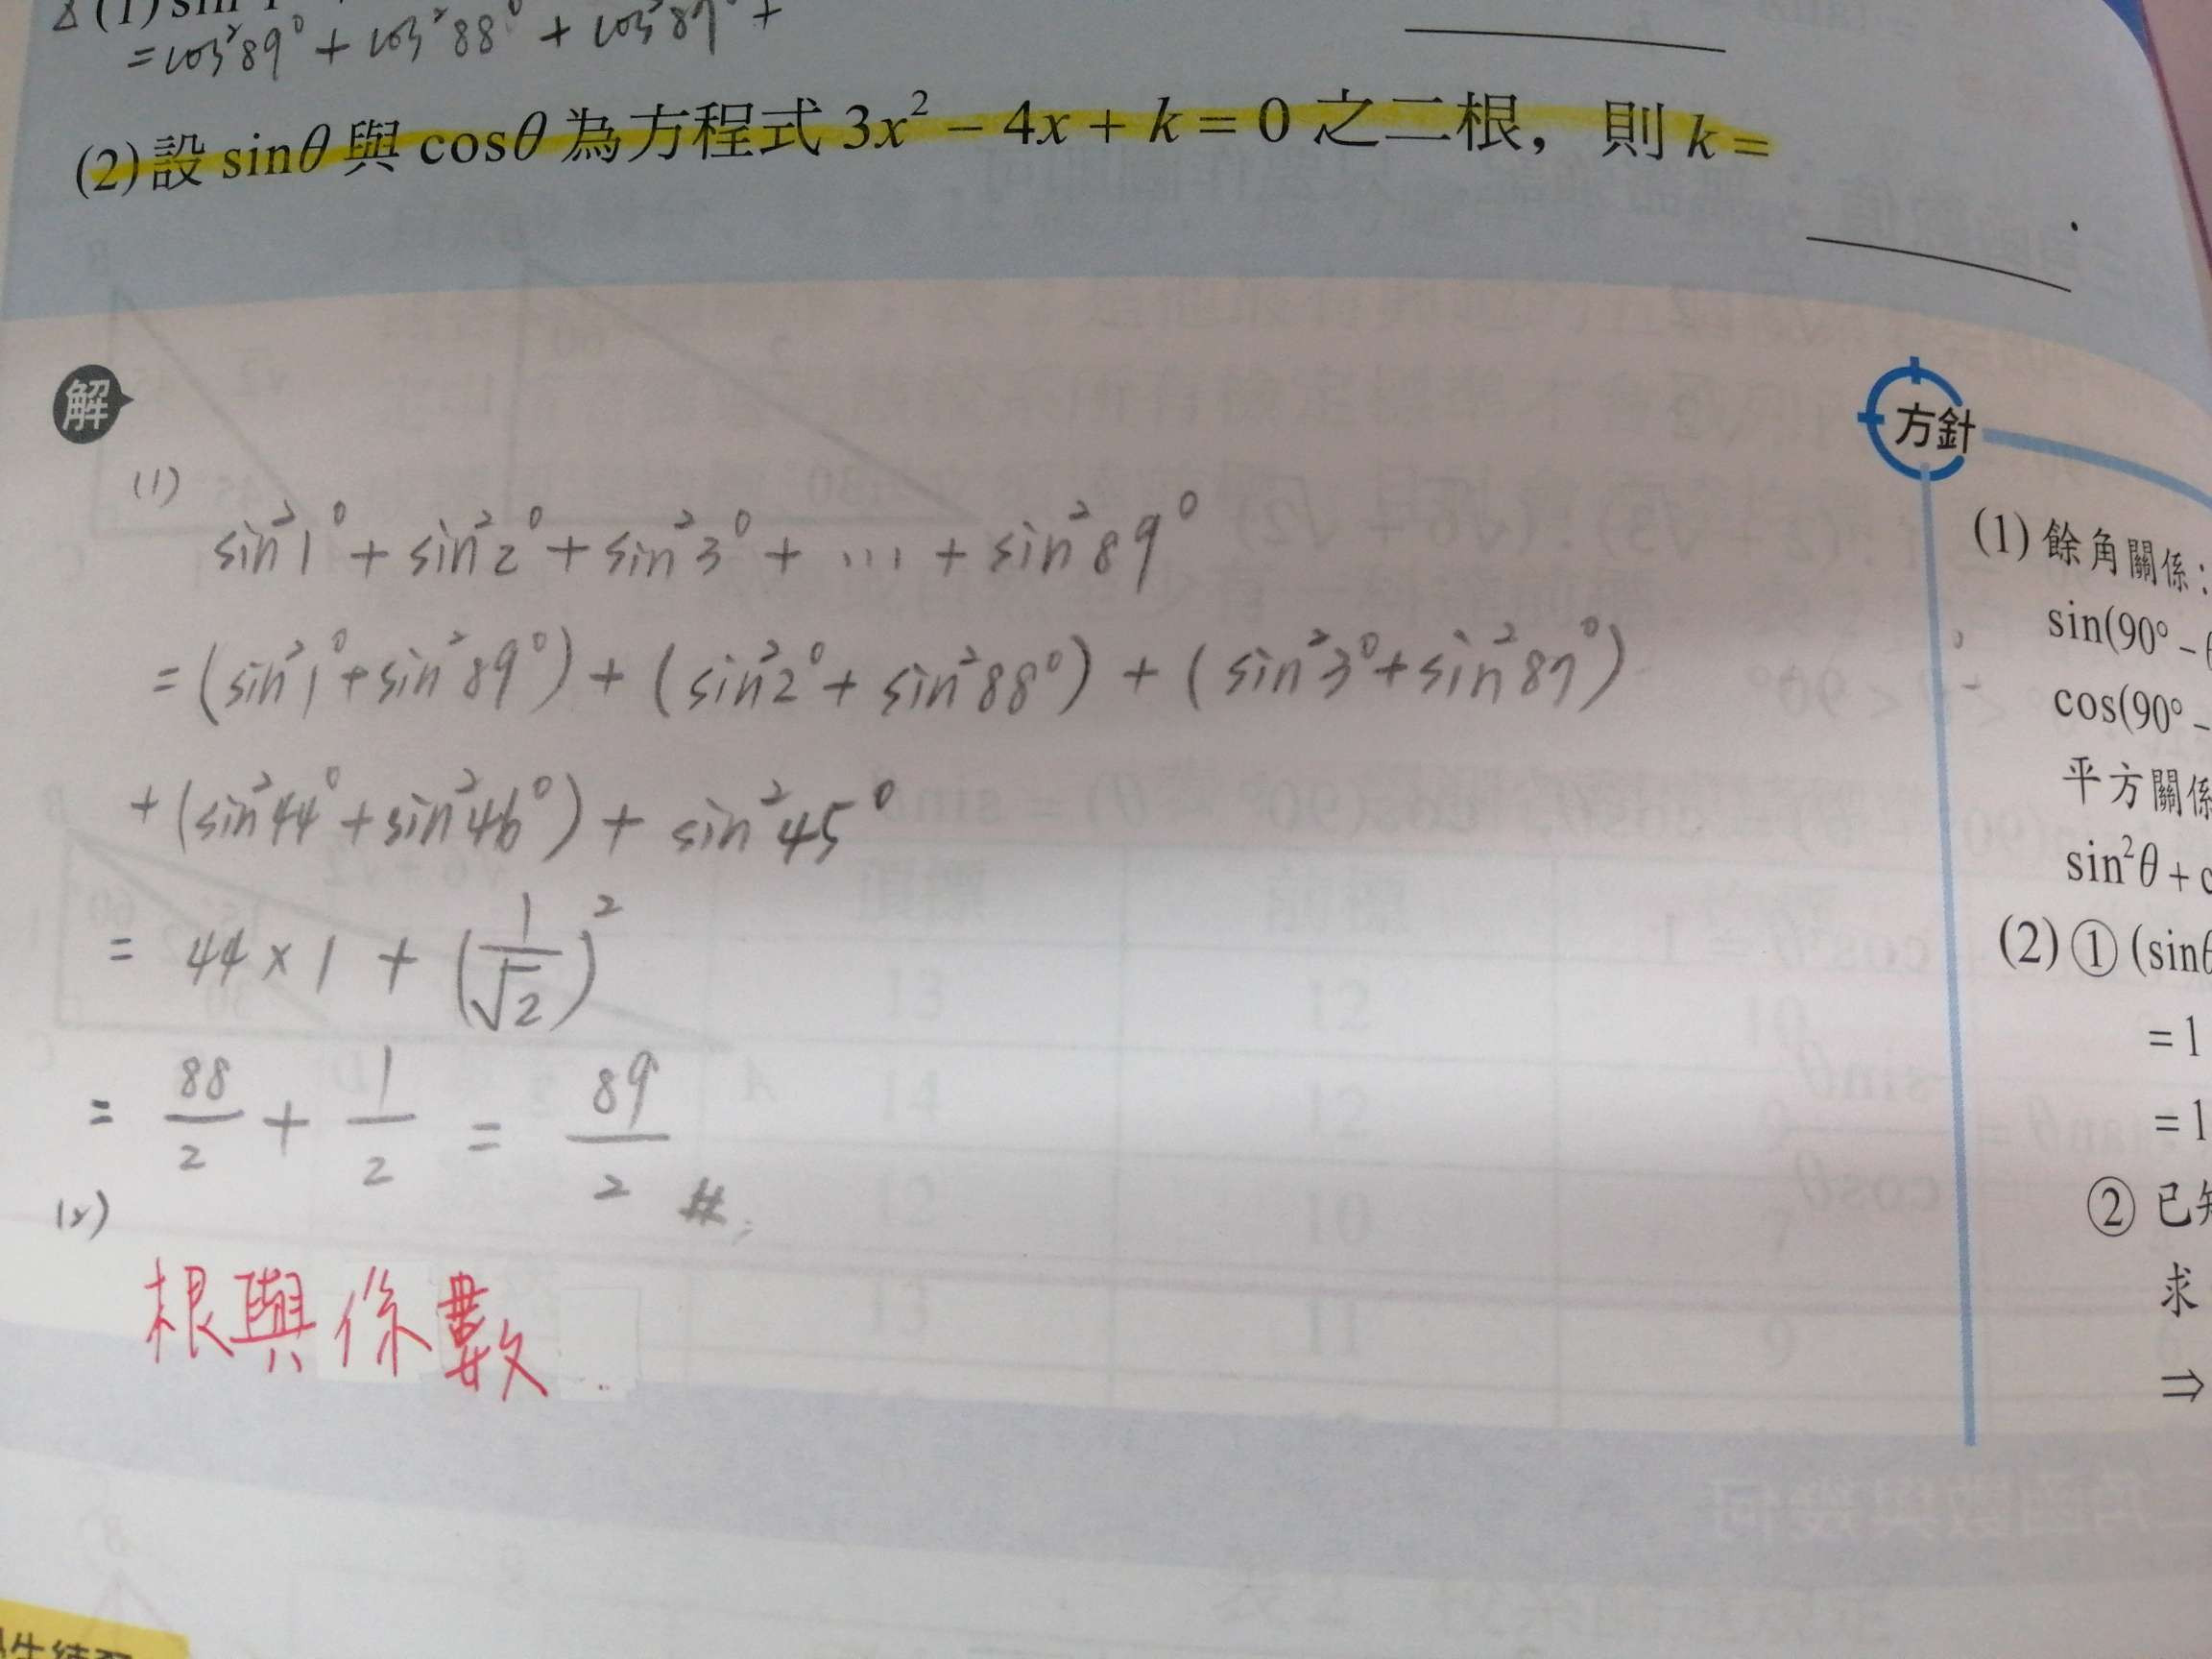 =cos²89° + cos²88° + cos²87° +
(2)設 sinθ 與 cosθ 為方程式 3x² − 4x + k = 0 之二根，則 k =
解
(1)
sin²1° + sin²2° + sin²3° + ... + sin²89°
= (sin²1° + sin²89°) + (sin²2° + sin²88°) + (sin²3° + sin²87°)
+ (sin²44° + sin²46°) + sin²45°
= 44 × 1 + (1/√2)²
= 88/2 + 1/2 = 89/2 #
(2)
根與係數
方針
(1) 餘角關係：
sin(90° −
cos(90° −
平方關係
sin²θ +
(2) ① (sinθ
= 1
= 1
② 已
求
⇒